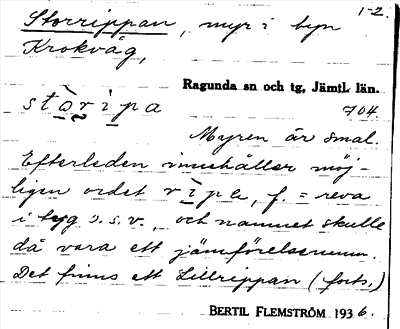 1-2.
Storrippan, myr i byn
Krokvåg,
Ragunda sn och tg, Jämtl. län.
704.
stòripa
Myren är smal.
Efterleden innehåller möj-
ligen ordet rìpe, f. = reva
i tyg o.s.v., och namnet skulle
då vara ett jämförelsenamn.
Det finns ett Lillrippan (forts.)
BERTIL FLEMSTRÖM 1936.